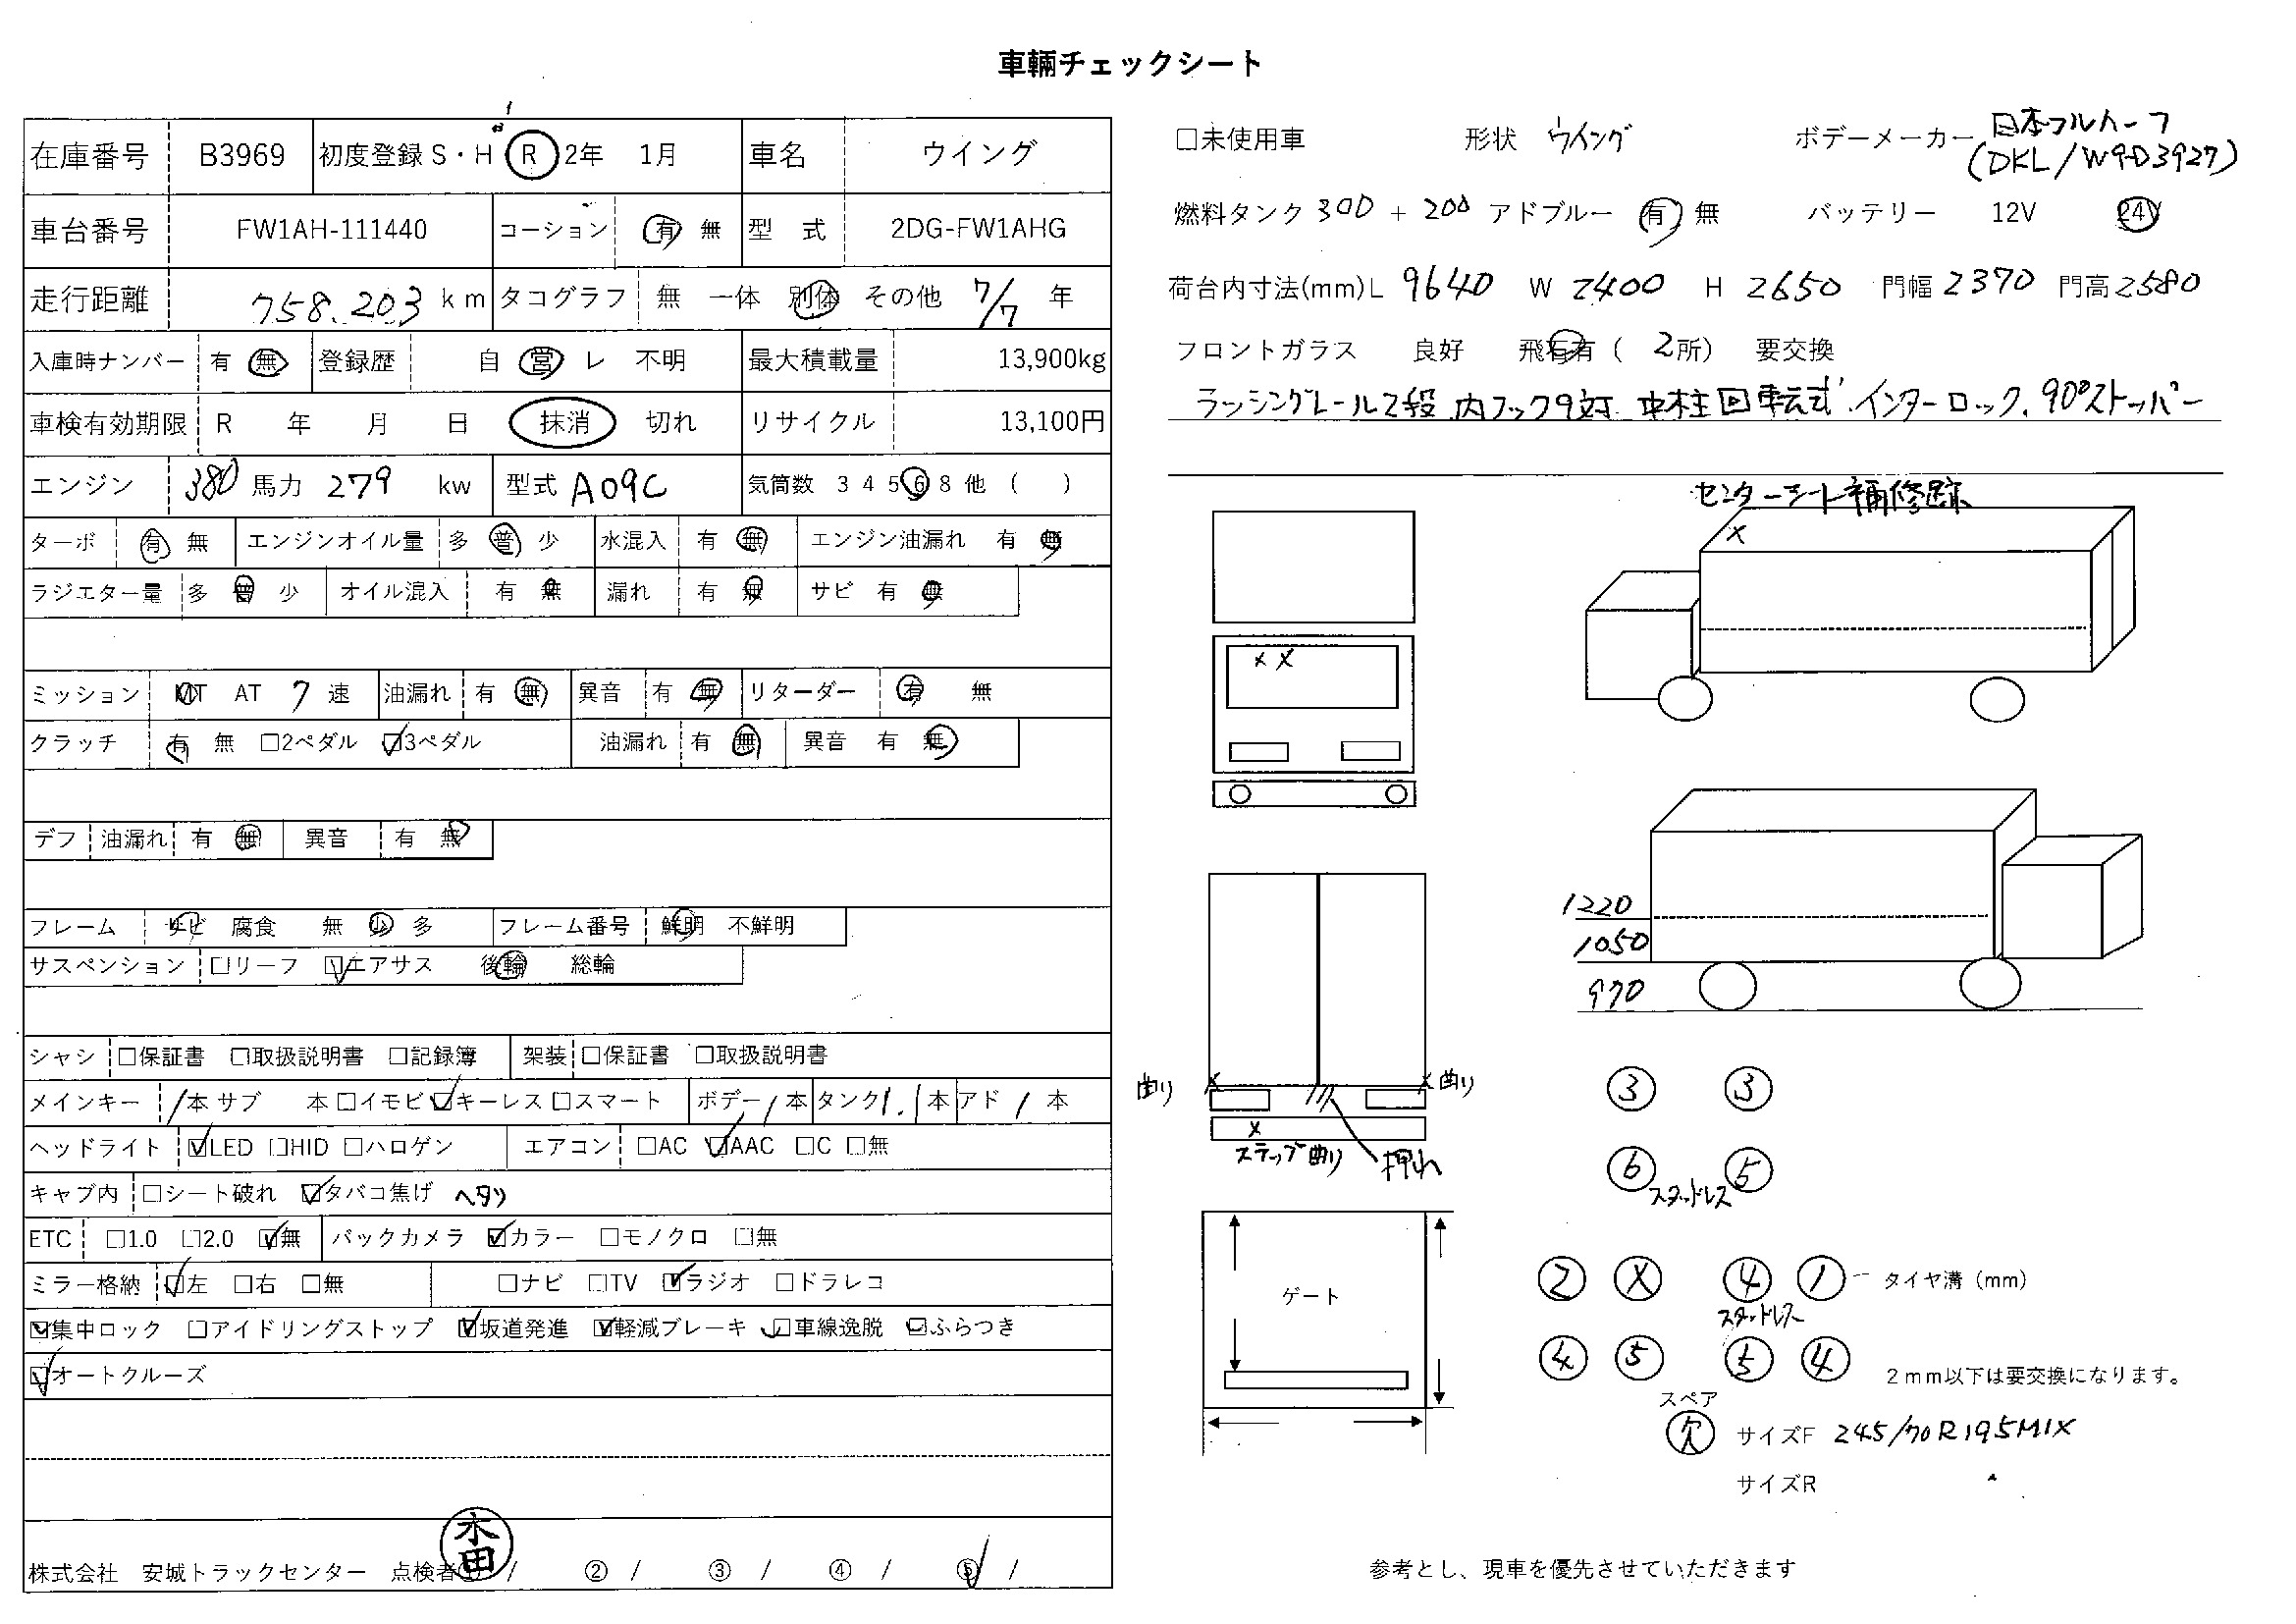 車輛チェックシート
在庫番号 B3969 初度登録 S・H R 2年 1月 車名 ウイング
車台番号 FW1AH-111440 コーション 有 無 型 式 2DG-FW1AHG
走行距離 758.203 km タコグラフ 無 一体 別体 その他 7/7 年
入庫時ナンバー 有 無 登録歴 自 営 レ 不明 最大積載量 13,900kg
車検有効期限 R 年 月 日 抹消 切れ リサイクル 13,100円
エンジン 380 馬力 279 kw 型式 A09C 気筒数 3 4 5 6 8 他 ( )
ターボ 有 無 エンジンオイル量 多 普 少 水混入 有 無 エンジン油漏れ 有 無
ラジエター量 多 普 少 オイル混入 有 無 漏れ 有 無 サビ 有 無
ミッション MT AT 7 速 油漏れ 有 無 異音 有 無 リターダー 有 無
クラッチ 有 無 □2ペダル ☑3ペダル 油漏れ 有 無 異音 有 無
デフ 油漏れ 有 無 異音 有 無
フレーム サビ 腐食 無 少 多 フレーム番号 鮮明 不鮮明
サスペンション □リーフ ☑エアサス 後輪 総輪
シャシ □保証書 □取扱説明書 □記録簿 架装 □保証書 □取扱説明書
メインキー 1本 サブ 本 □イモビ ☑キーレス □スマート ボデー 1 本 タンク 1.1 本 アド 1 本
ヘッドライト ☑LED □HID □ハロゲン エアコン □AC ☑AAC □C □無
キャブ内 □シート破れ ☑タバコ焦げ ヘタリ
ETC □1.0 □2.0 ☑無 バックカメラ ☑カラー □モノクロ □無
ミラー格納 ☑左 □右 □無 □ナビ □TV ☑ラジオ □ドラレコ
☑集中ロック □アイドリングストップ ☑坂道発進 ☑軽減ブレーキ ☑車線逸脱 ☑ふらつき
☑オートクルーズ
株式会社 安城トラックセンター 点検者① / ② / ③ / ④ / ⑤ /
□未使用車 形状 ウイング ボデーメーカー 日本フルハーフ
(DKL/W9D3927)
燃料タンク 300 + 200 アドブルー 有 無 バッテリー 12V 24V
荷台内寸法(mm) L 9640 W 2400 H 2650 門幅 2370 門高 2580
フロントガラス 良好 飛石有 ( 2所) 要交換
ラッシングレール2段.内フック9対.中柱回転式.インターロック.90°ストッパー
センターシート補修跡
x
x x
1220
1050
970
曲り x x 曲り
x
ステップ曲り 押れ
③ ③
⑥ ⑤
スタッドレス
ゲート
② X ④ ① タイヤ溝(mm)
スタッドレス
④ ⑤ ⑤ ④ 2mm以下は要交換になります。
スペア
欠 サイズF 245/70R195MIX
サイズR
参考とし、現車を優先させていただきます